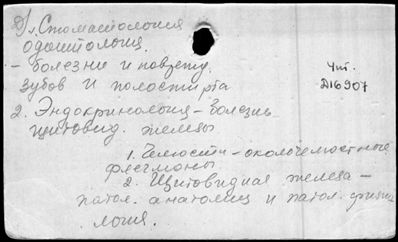 1. Стоматология
одонтология.
- болезни и поврежд.
зубов и полости рта
Чит.
D16907
2. Эндокринология - болезнь
щитовид. железы
1. Челюсти - околочелюстные
флегмоны
2. Щитовидная железа -
патол. анатомия и патол. физио
логия.